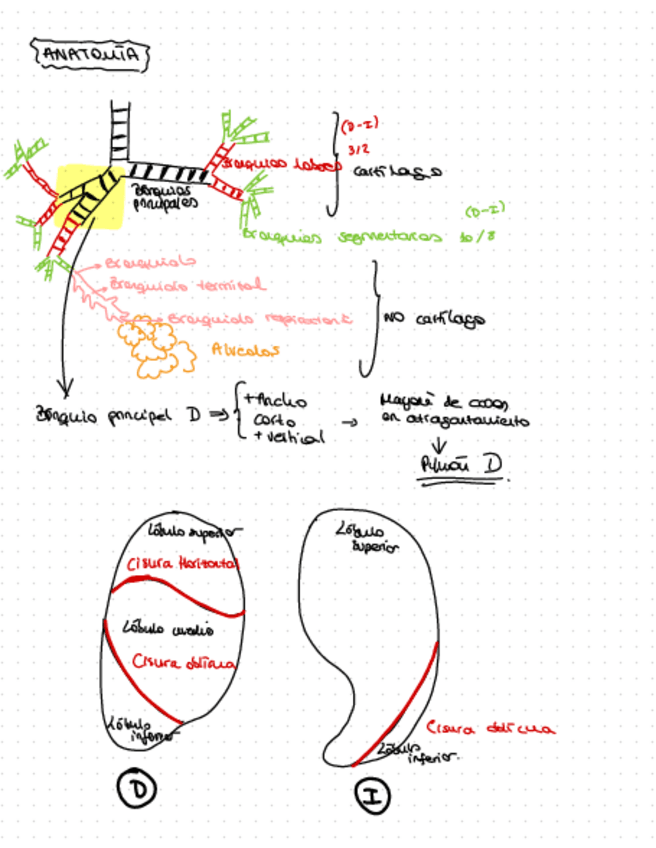 ANATOMÍA
(D-I)
3/2
Bronquios lobares
Cartílago
Bronquios
principales
(D-I)
Bronquios segmentarios 10/8
Bronquiolo
Bronquiolo terminal
Bronquiolo respiratorio
NO cartílago
Alveolos
Bronquio principal D ⇒
+ Ancho
corto
+ vertical
→
Mayoría de cosas
en atragantamiento
↓
Pulmón D
Lóbulo superior
Cisura Horizontal
Lóbulo medio
Cisura oblicua
Lóbulo
inferior
D
Lóbulo
superior
Cisura oblicua
Lóbulo
inferior.
I